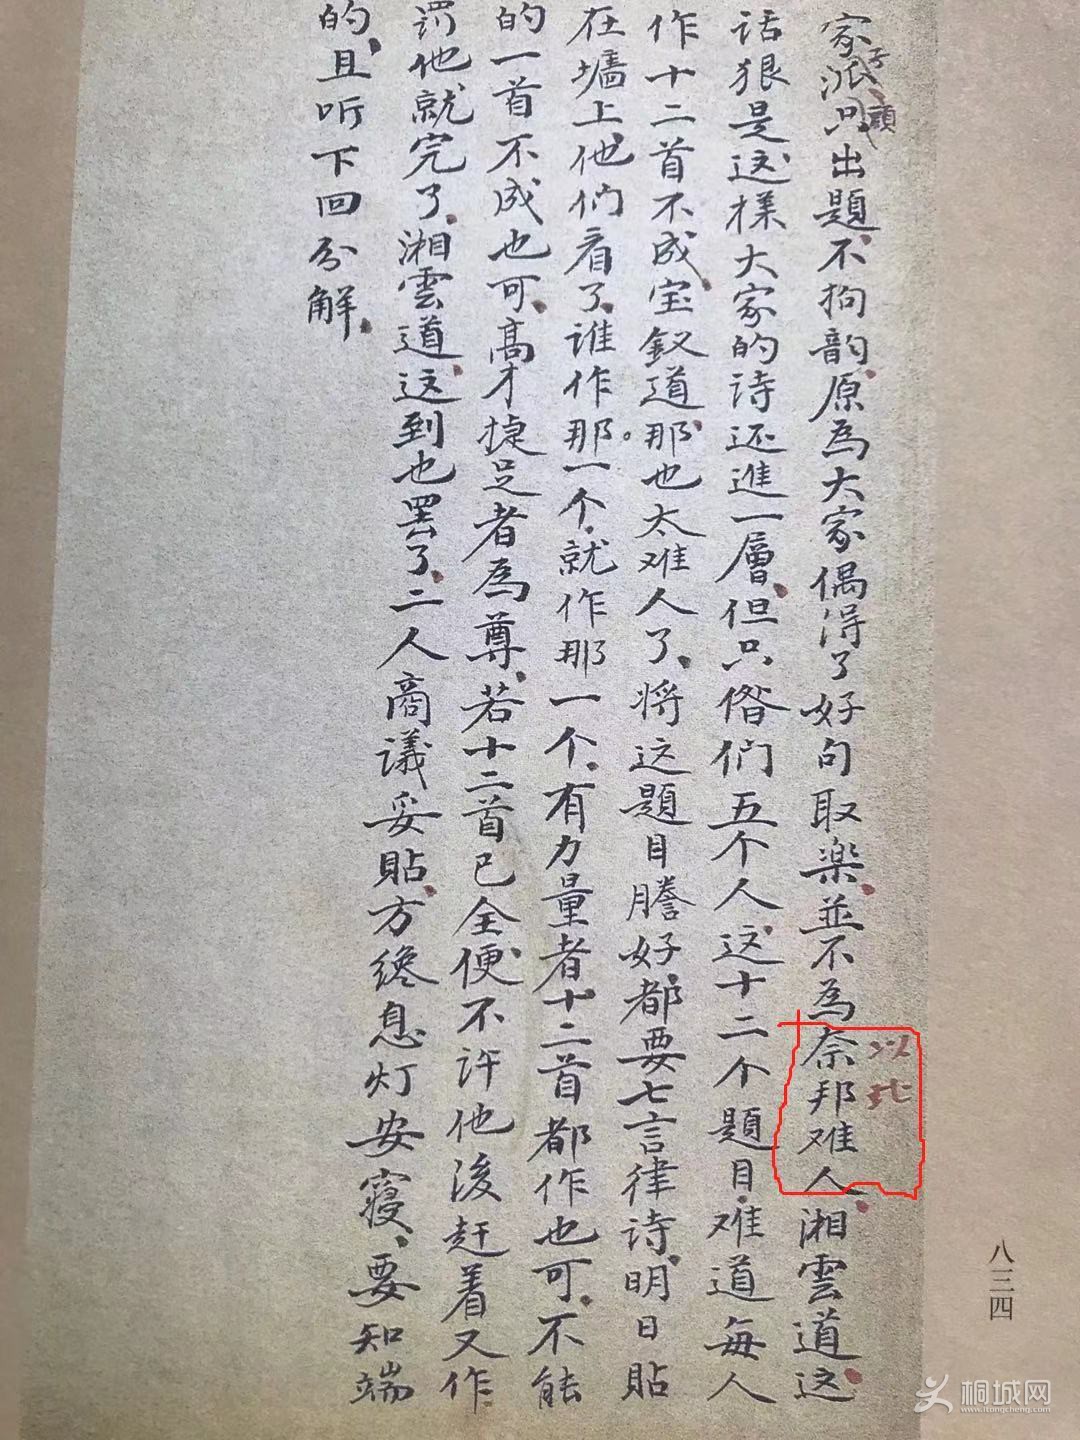 家派只出題不拘韵原為大家偶得了好句取楽並不為奈邦难人湘雲道这
子
以此
话狠是这樣大家的诗还進一層但只偺们五个人这十二个題目难道每人
作十二首不成宝釵道那也太难人了将这題目謄好都要七言律诗明日貼
在墙上他们看了谁作那一个就作那一个有力量者十二首都作也可不能
的一首不成也可高才捷足者為尊若十二首已全便不许他後赶着又作
罚他就完了湘雲道这到也罢了二人商議妥貼方纔息灯安寝要知端
的且听下回分解
八三四
桐城网
www.itongcheng.com